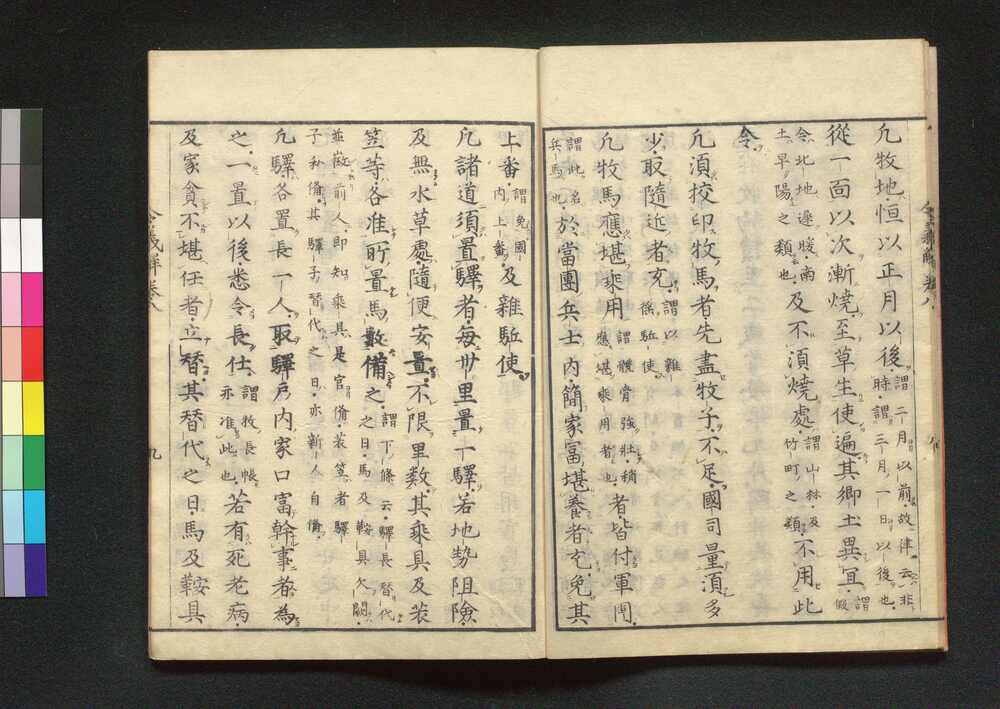 凡牧地恒以正月以後謂二月以前故律云非時謂三月一日以後也
從一面以次漸燒至草生使遍其鄉土異冝謂假
令北地遲暖南土早陽之類也及不湏燒處謂山林及竹町之類不用此
令
凡湏挍印牧馬者先盡牧子不足國司量湏多
少取隨近者充謂以雜徭駈使
凡牧馬應堪乘用謂體骨強壯稍應堪乘用者也者皆付軍團
謂此名兵馬也於當團兵士内簡家冨堪養者充免其
上番謂免國内上番及雜駈使
凡諸道須置驛者每卅里置一驛若地勢阻險
及無水草處隨便安置不限里數其乘具及蓑
笠等各准所置馬數備之謂下條云驛長替代之日馬及鞍具欠闕
並徵前人即知乘具是官備蓑笠者驛子私備其驛子替代之日亦新人自備
凡驛各置長一人取驛戶内家口富幹事者為
之一置以後悉令長仕謂牧長帳亦准此也若有死老病
及家貧不堪任者立替其替代之日馬及鞍具
令義解卷八
九